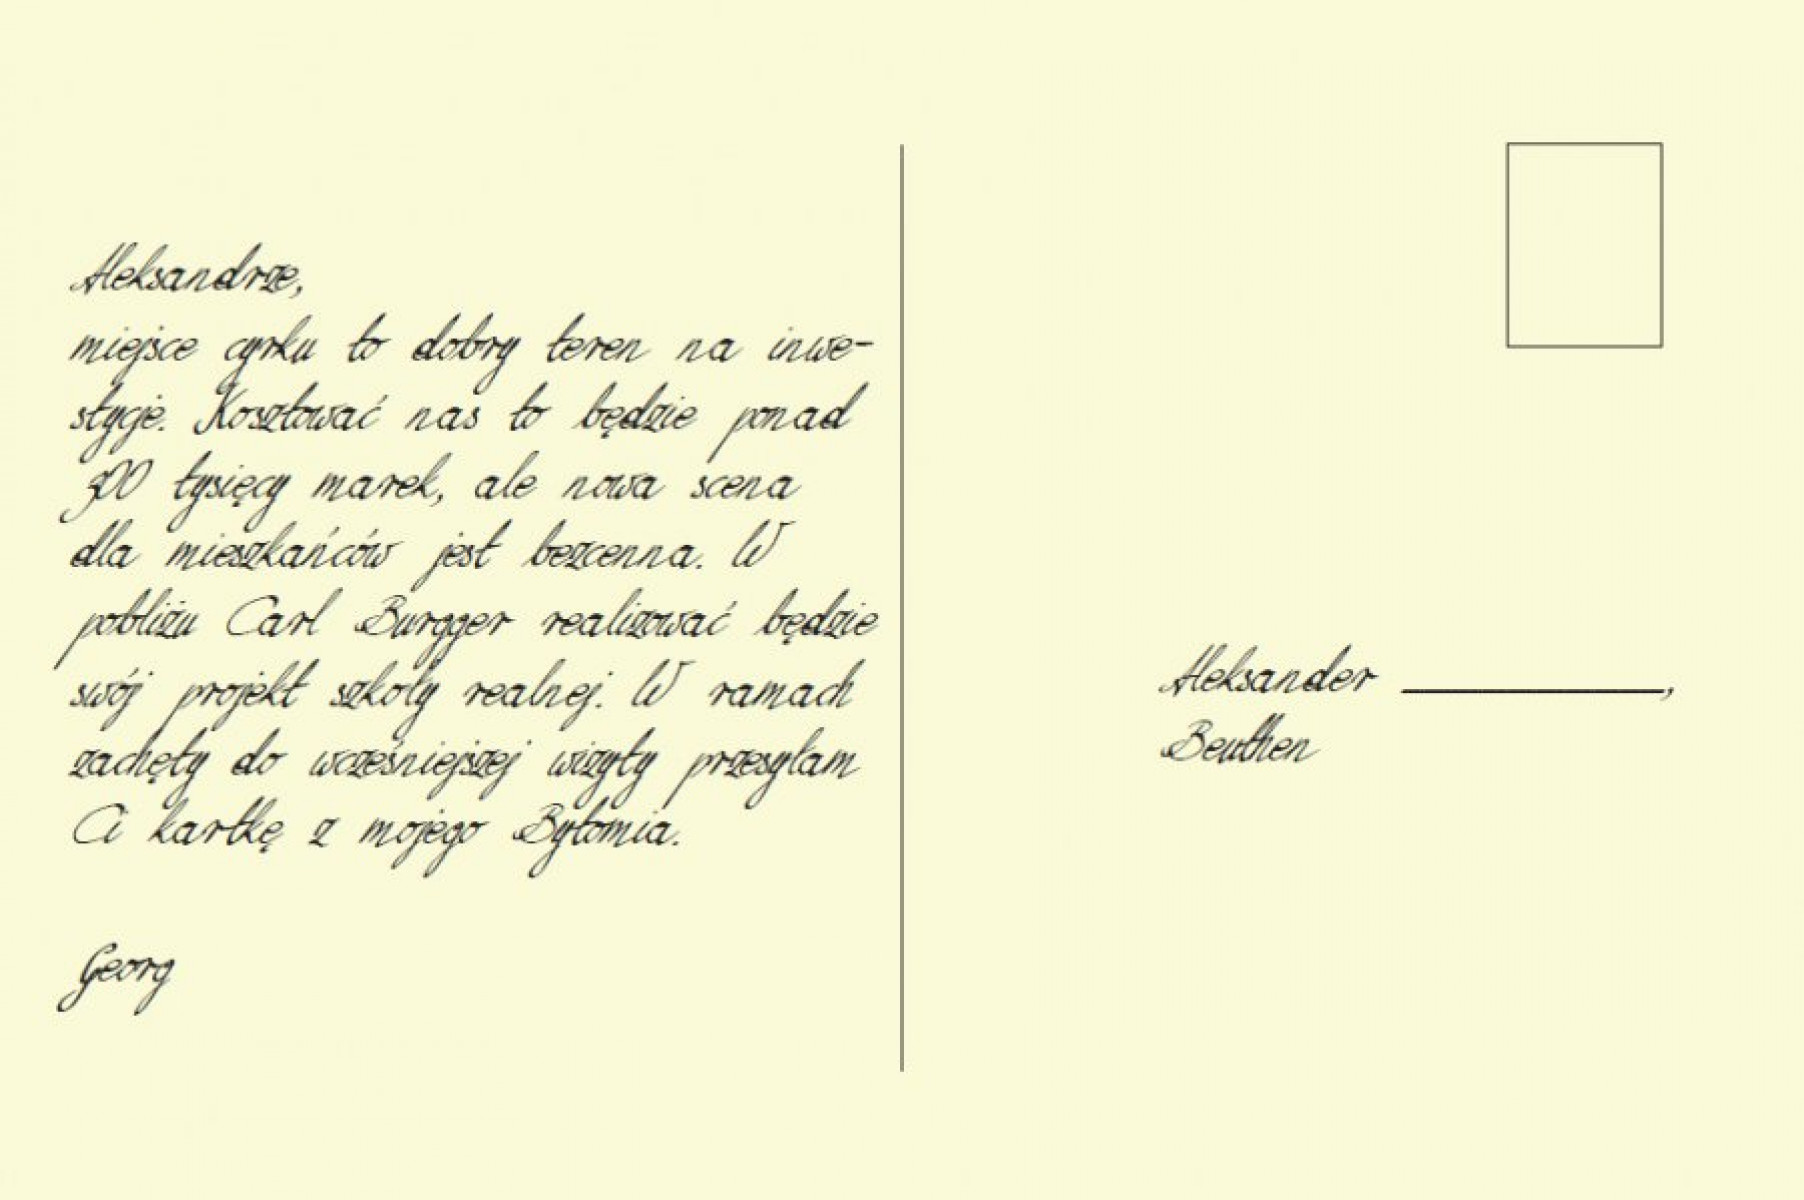 Aleksandrze,
miejsce cyrku to dobry teren na inwe-
stycje. Kosztować nas to będzie ponad
300 tysięcy marek, ale nowa scena
dla mieszkańców jest bezcenna. W
pobliżu Carl Burgger realizować będzie
swój projekt szkoły realnej. W ramach
zachęty do wcześniejszej wizyty przesyłam
Ci kartkę z mojego Bytomia.
Georg
Aleksander __________,
Beuthen